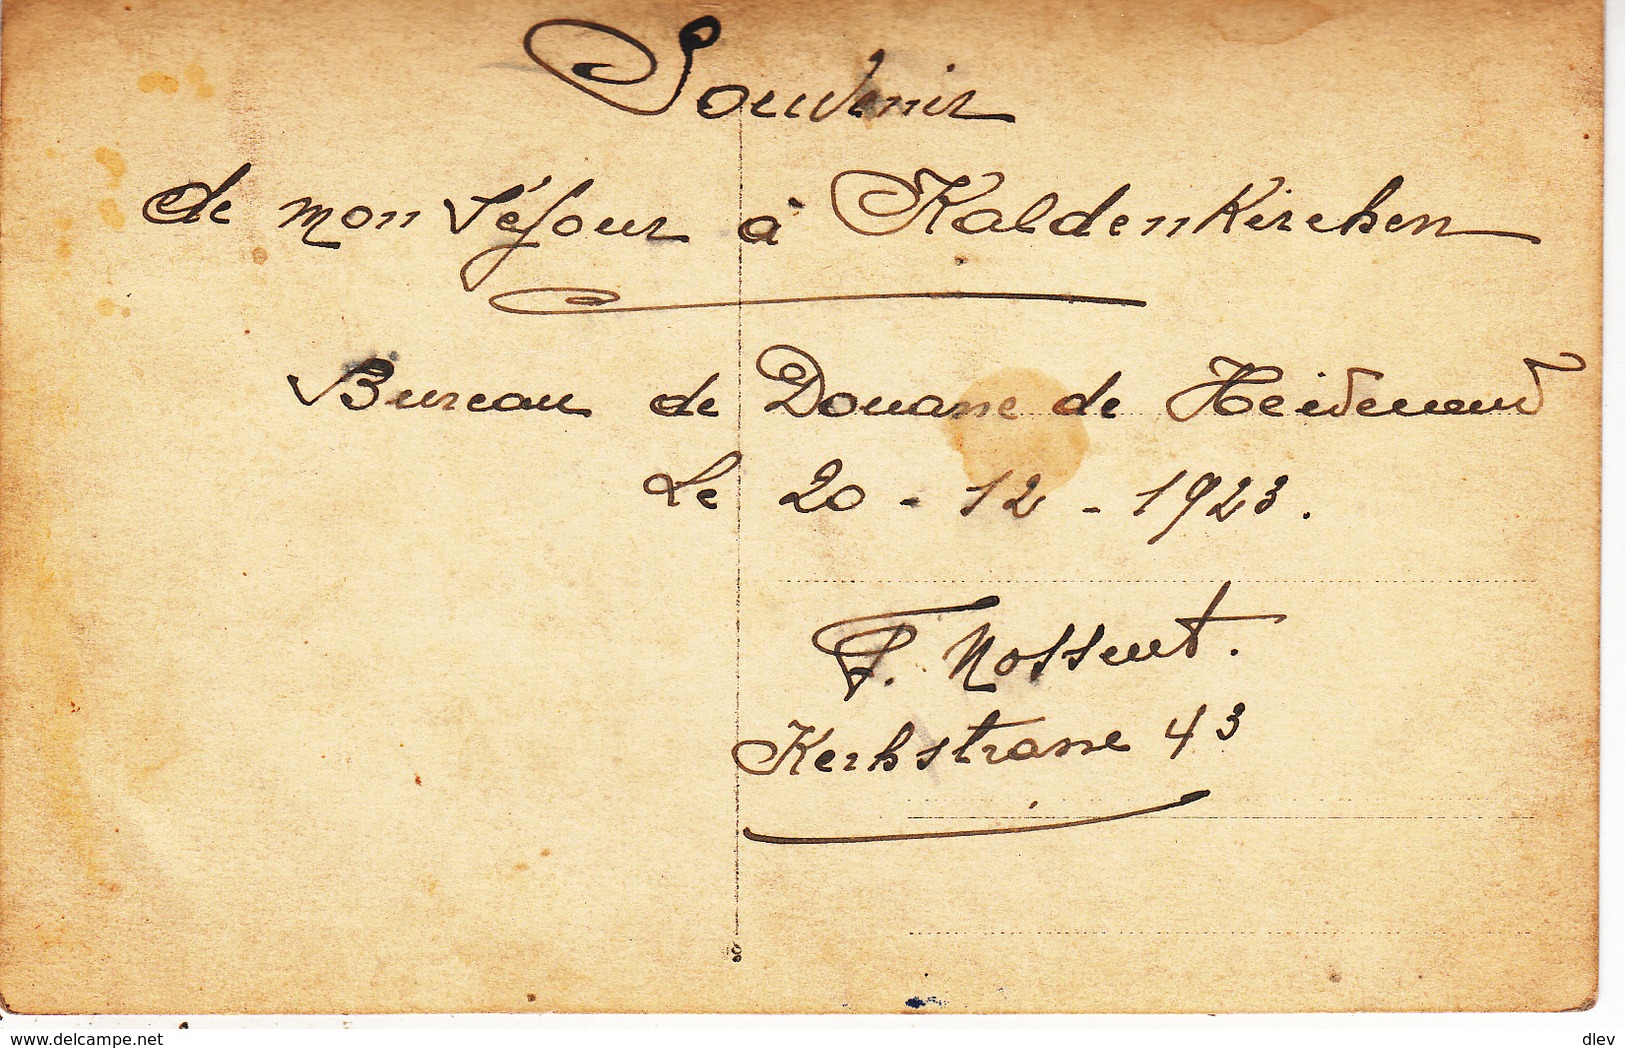 Souvenir
de mon séjour à Kaldenkirchen
Bureau de Douane de Heidenend
Le 20 - 12 - 1923.
F. Nossent.
Kerhstrasse 43
www.delcampe.net
dlev